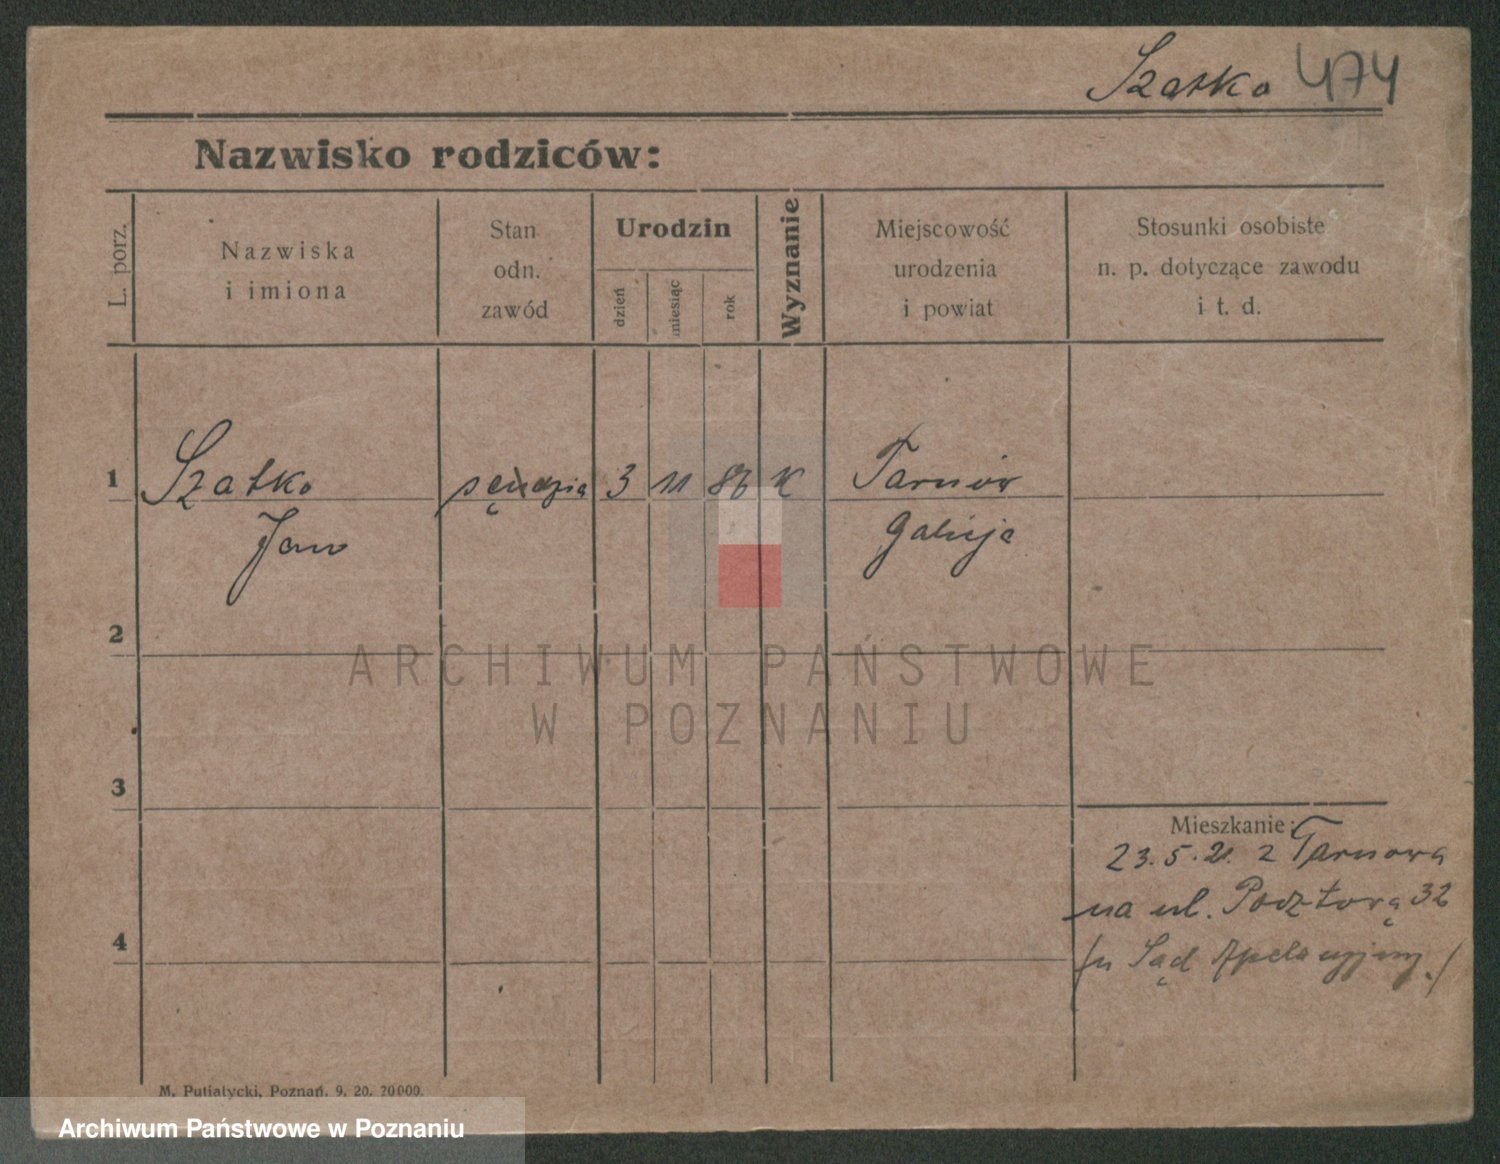 Szatko 474
Nazwisko rodziców:
L. porz.
Nazwiska
i imiona
Stan
odn.
zawód
Urodzin
dzień
miesiąc
rok
Wyznanie
Miejscowość
urodzenia
i powiat
Stosunki osobiste
n. p. dotyczące zawodu
i t. d.
1 Szatko sędzia 3 11 86 K Tarnów
Jan Galicja
2
ARCHIWUM PAŃSTWOWE
W POZNANIU
3
Mieszkanie:
23.5.21. z Tarnowa
na ul. Pocztową 32
4
/u Sąd Apelacyjny./
M. Putiatycki, Poznań. 9. 20. 20000.
Archiwum Państwowe w Poznaniu